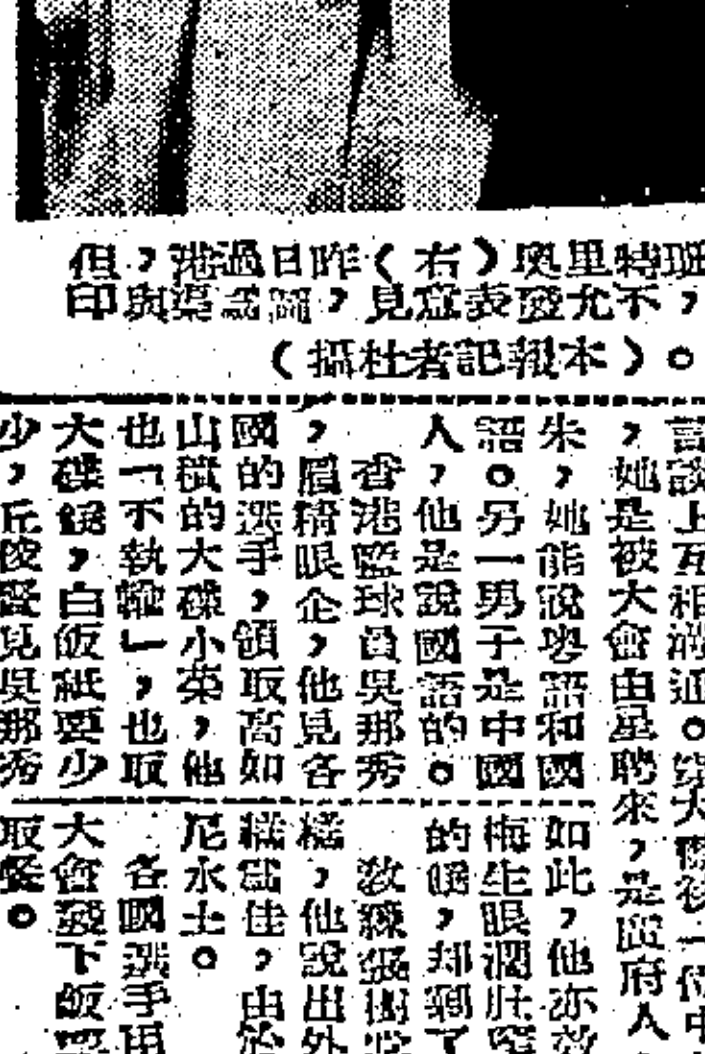 班特里奧（右）昨日過港，但
，不允發表意見，圖為渠與印
。（本報記者杜攝）
言談上互相溝通。
，她是被大會由星聘來，是廣府人
朱，她能說粵語和國
語。另一男子是中國
人，他是說國語的。
香港籃球員吳那秀
，眉精眼企，他見各
國的選手，領取高如
山積的大碟小菜，他
也「不執輸」，也取
大碟餸，白飯祇要少
少，丘俊賢見吳那秀
如此，他亦效
梅生眼濶肚窄
的
教練
糕，他說出外
糕為佳，由於
尼水土。
各國選手用
大會發下飯
取餐。